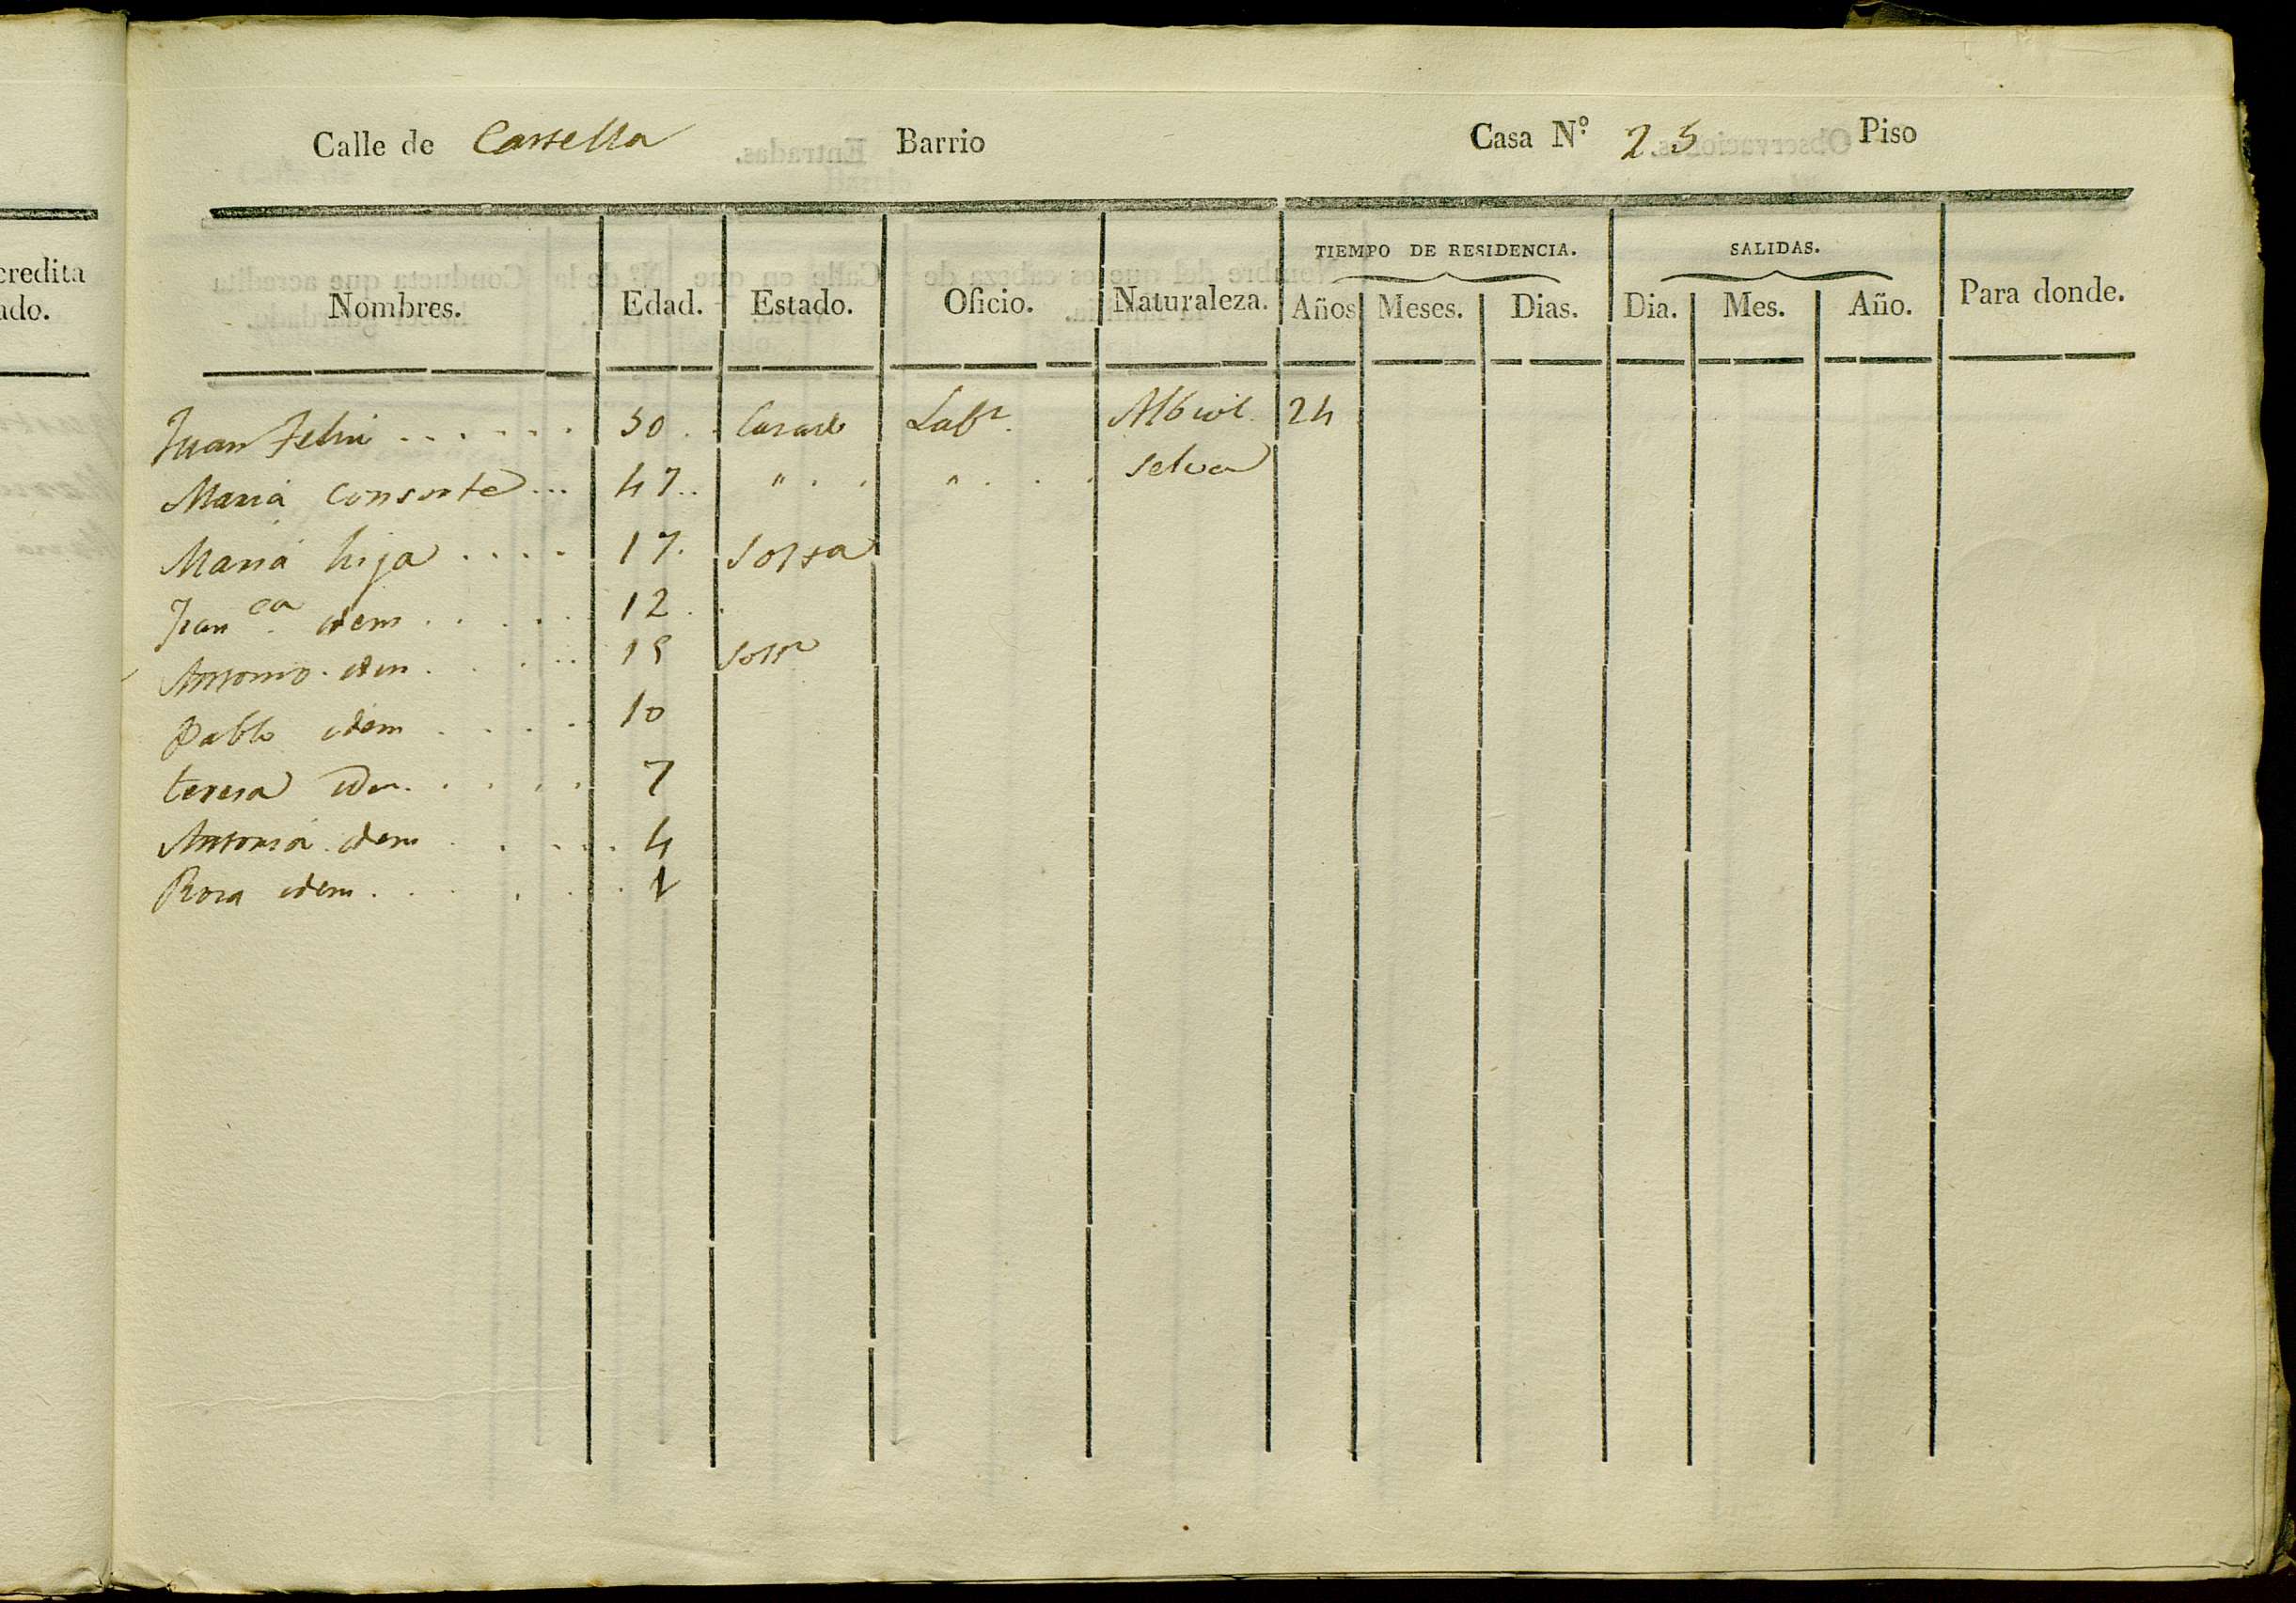 credita
ado.
Calle de Castella Barrio Casa N.º 25 Piso
TIEMPO DE RESIDENCIA. SALIDAS.
Nombres. Edad. Estado. Oficio. Naturaleza. Años Meses. Dias. Dia. Mes. Año. Para donde.
Juan Feliu . . . . . . 50 . . Casado Labr. Albiol. 24
Maria Consorte . . . 47 . . " . . " . . . Selva
Maria hija . . . . 17. Soltra
Fran.ca idem . . . . . 12 . .
Antonio idem . . . . 15 Soltr
Pablo idem . . . . 10
teresa idem . . . . . 7
Antonia idem . . . . . 4
Rosa idem . . . . . 1